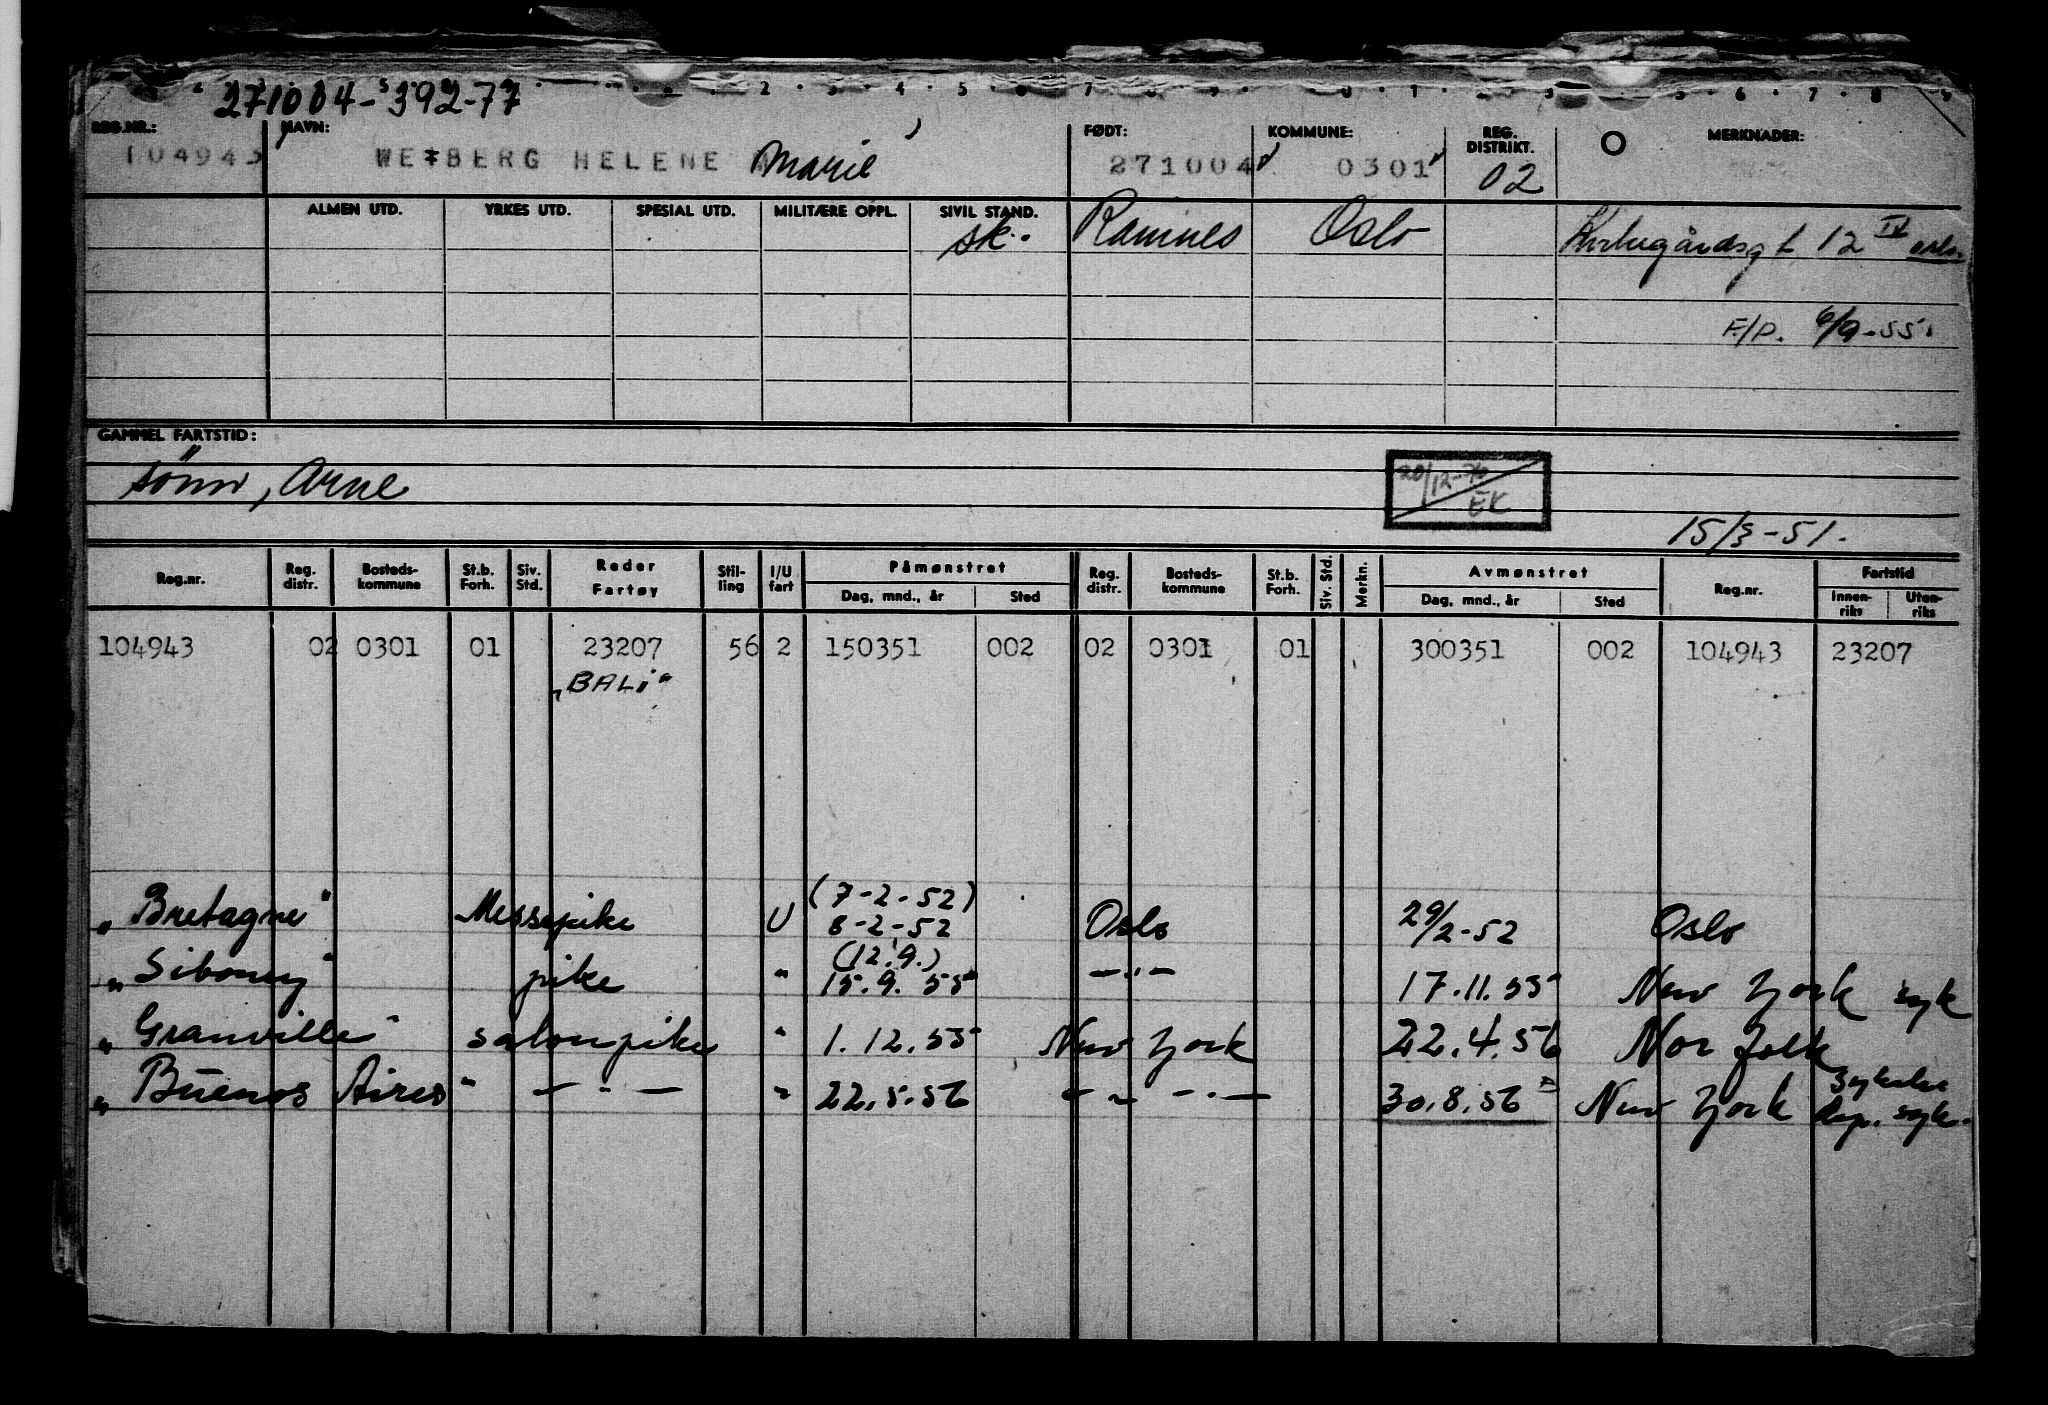 271004-39277
REG.NR.: NAVN: FØDT: KOMMUNE: REG. DISTRIKT. MERKNADER:
104943 WETBERG HELENE Marie 271004 0301 02
ALMEN UTD. YRKES UTD. SPESIAL UTD. MILITÆRE OPPL. SIVIL STAND.
sk. Ramnes Oslo 12 IV oslo.
F/P. 6/9-55.
GAMMEL FARTSTID:
sönn, Arne
20/12-76 EK
15/3-51.
Reg.nr. Reg. distr. Bosteds-kommune St.b. Forh. Siv. Std. Reder Fartøy Stil-ling I/U fart Påmønstret Dag, mnd., år Sted Reg. distr. Bosteds-kommune St.b. Forh. Siv. Std. Merkn. Avmønstret Dag, mnd., år Sted Reg.nr. Fartstid Innen-riks Uten-riks
104943 02 0301 01 23207 56 2 150351 002 02 0301 01 300351 002 104943 23207
"BALI"
(7-2-52)
"Bretagne" Messepike U 8-2-52 Oslo 29/2-52 Oslo
(12.9.)
"Siboney" pike " 15.9.55 -"- 17.11.55 New York syk
"Granville" salonpike " 1.12.55 New York 22.4.56 Norfolk
"Buenos Aires" -"- " 22.5.56 " " -"- 30.8.56 New York syk.